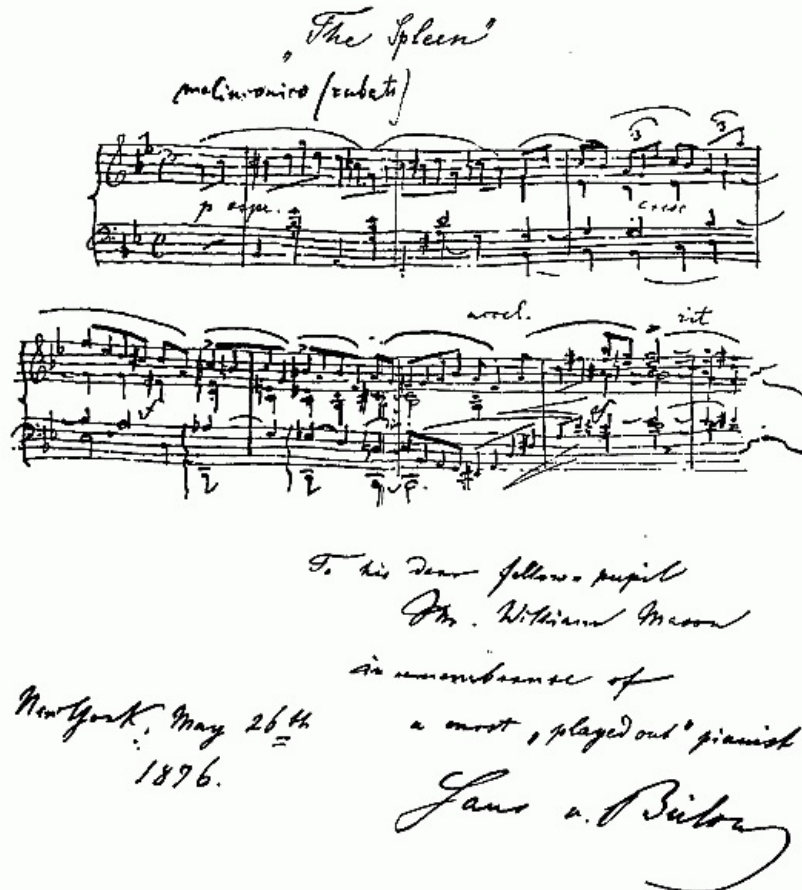 „The Spleen"
malinconico (rubato)
3 3
p espr. cresc
accel. rit
sf sf
To his dear fellow-pupil
Mr. William Mason
in remembrance of
a most „played out" pianist
New York, May 26th
1876.
Hans v. Bülow